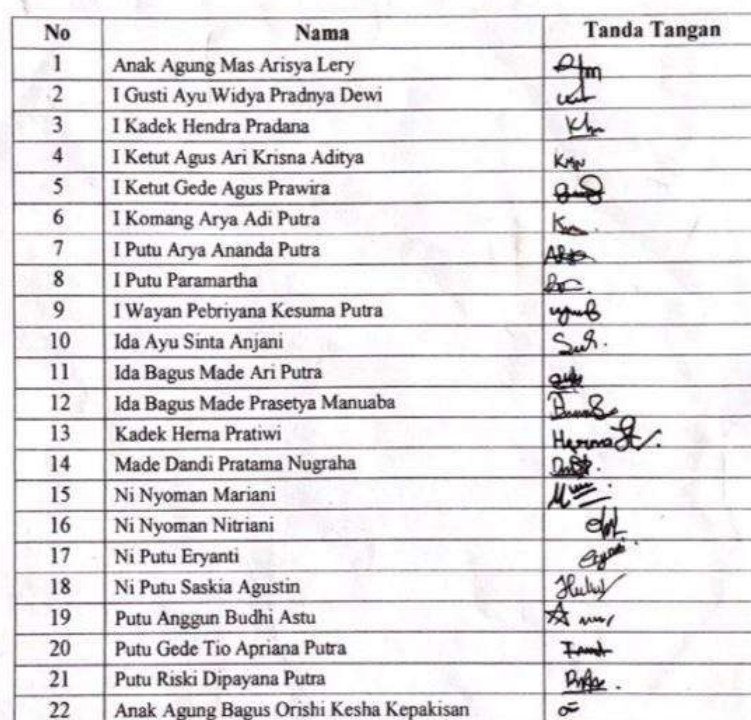 No Nama Tanda Tangan
1 Anak Agung Mas Arisya Lery
2 I Gusti Ayu Widya Pradnya Dewi
3 I Kadek Hendra Pradana
4 I Ketut Agus Ari Krisna Aditya
5 I Ketut Gede Agus Prawira
6 I Komang Arya Adi Putra
7 I Putu Arya Ananda Putra
8 I Putu Paramartha
9 I Wayan Pebriyana Kesuma Putra
10 Ida Ayu Sinta Anjani
11 Ida Bagus Made Ari Putra
12 Ida Bagus Made Prasetya Manuaba
13 Kadek Herna Pratiwi Herna
14 Made Dandi Pratama Nugraha
15 Ni Nyoman Mariani
16 Ni Nyoman Nitriani
17 Ni Putu Eryanti
18 Ni Putu Saskia Agustin
19 Putu Anggun Budhi Astu
20 Putu Gede Tio Apriana Putra
21 Putu Riski Dipayana Putra
22 Anak Agung Bagus Orishi Kesha Kepakisan